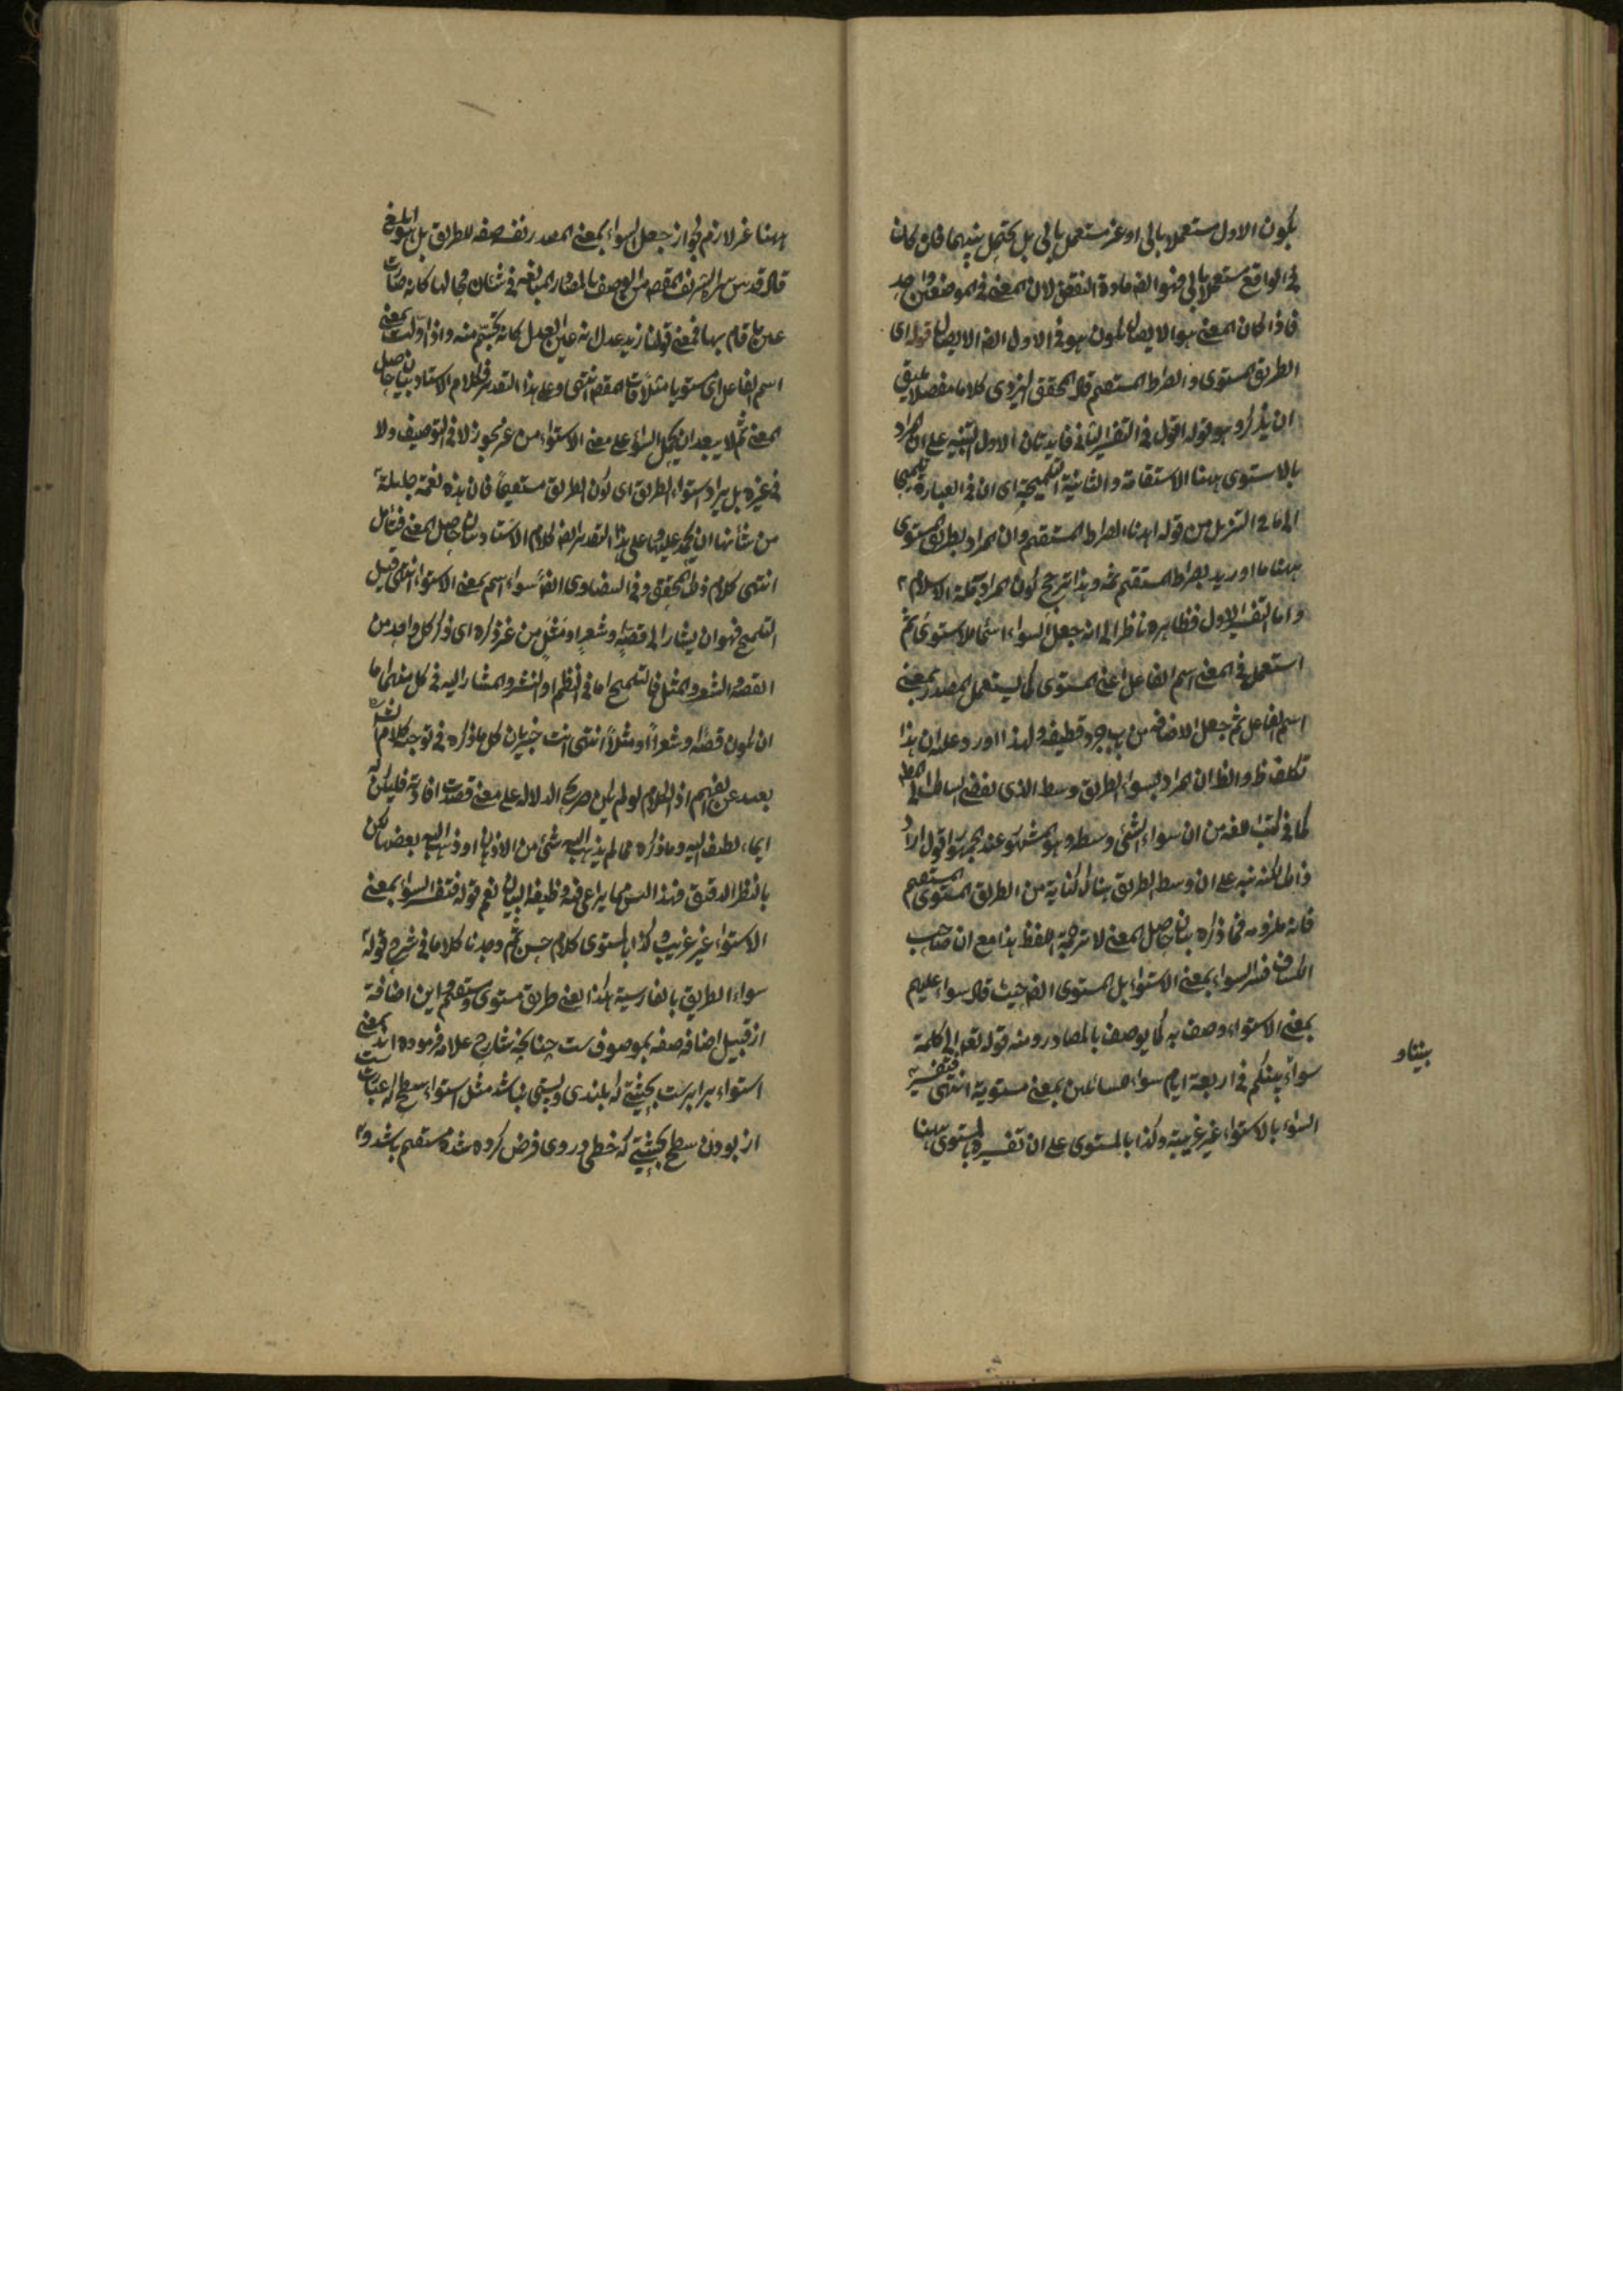 يكون الاول مستعملا بالى او غير مستعمل بالى بل يحتمل بينهما فان كان
فى الواقع مستعملا بالى فهو ايضا مادة النقض لان المعنى فى الموضعين واحد
فاذا كان المعنى هو الايصال يكون هو فى الاول ايضا الايصال قوله اى
الطريق المستوى والصراط المستقيم قال المحقق اليزدى كلاما مفصلا يليق
ان يذكر وهو قوله اقول فى التفسير الثانى فايدتان الاولى التنبيه على ان المراد
بالاستوى ههنا الاستقامة والثانية التلميحية اى ان فى العبارة تلميحا
الى ما فى التنزيل من قوله اهدنا الصراط المستقيم وان المراد بطريق المستوى
ههنا ما اوريد بصراط المستقيم ثمه وهذا ترجيح كون المراد به ملة الاسلام
واما التفسير الاول فظاهره ناظر الى انه جعل السواء اسما للاستوى ثم
استعمل فى المعنى اسم الفاعل اعنى المستوى كما يستعمل المصدر بمعنى
اسم الفاعل ثم جعل الاضافة من باب جرد قطيفة ولهذا اورد عليه ان هذا
تكلف ظ والظ ان المراد بسواء الطريق وسط الذى يفضى سالكه الى المط
كما فى كتب اللغه من ان سواء الشئ وسطه وهو المشهور عند الجمهور اقول اراد
ذلك لكنه نبه على ان وسط الطريق هناك كناية من الطريق المستوى المستقيم
فانه ملزومه فما ذكره بيان حاصل المعنى لا ترجمة اللفظ هذا مع ان صاحب
الكشاف فسر السواء بمعنى الاستواء بل المستوى ايضا حيث قال سواء عليهم
بمعنى الاستواء وصف به كما يوصف بالمصادر ومنه قوله تعالى الى كلمة
سواء بيننا وبينكم فى اربعة ايام سواء للسائلين بمعنى مستوية انتهى فتفسير
السواء بالاستواء غير غريبة وكذا بالمستوى على ان تفسيره بالمستوى ههنا
ههنا غير لازم لجواز جعل السواء بمعنى المصدر نفسه صفه للطريق بل هو ابلغ
قال قدس سره الشريف المقصد من الوصف بالمصادر المبالغه فى شان محالها كانها صارت
عين ما قام بها فمعنى قولنا زيد عدل انه عين العدل كانه تجسم منه واذا اولت بمعنى
اسم الفاعل اى مستويا مثلا فات المقصد انتهى وعلى هذا التقدير فكلام الاستاد بيان حاصل
المعنى ثم لا يبعد ان يحمل السواء على معنى الاستواء من غير تجوز لا فى التوصيف ولا
فى غيره بل يراد استواء الطريق اى كون الطريق مستقيما فان هذه نعمة جليلة
من شأنها ان يحمد عليها وعلى هذا التقدير ايضا كلام الاستاد بيان حاصل المعنى فتأمل
انتهى كلام ذلك المحقق وفى البيضاوى ايضا سواء اسم بمعنى الاستواء انتهى قيل
التلميح فهو ان يشار الى قصة او شعر او مثل من غير ذكره اى ذكر كل واحد من
القصه والشعر والمثل فالتلميح اما فى النظم او النثر والمشار اليه فى كل منهما اما
ان يكون قصة او شعرا او مثلا انتهى انت خبير بان كل ما ذكره فى توجيه كلام الشه
بعيد عن الفهم اذ الكلام لو لم يكن صريح الدلاله على معنى قصدت افادته فليكن له
ايماء لطيف اليه وما ذكره مما لم يذهب اليه شئ من الاذهان او ذهب اليه بعضها لكن
بالنظر الدقيق فهذا ليس مما يراعى فيه وظيفه البيان نعم قوله فتفسير السواء بمعنى
الاستواء غير غريب وكذا بالمستوى كلام حسن ثم وجدنا كلاما فى شرح قوله
سواء الطريق بالفارسية هكذا يعنى طريق مستوى ومستقيم واين اضافة
از قبيل اضافه صفه بموصوف ست چنانچه شارح علامه فرموده اند بمعنى
استواء برابر ست بحيثيتى كه بلندى وپستى نباشد مثل استواء سطح كه عبارت ست
از بودن سطح بحيثيتى كه خطى در وى فرض كرده شده مستقيم باشد و